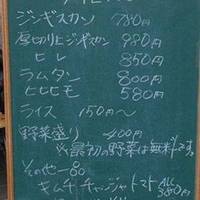 ジンギスカン 780円
厚切りジンギスカン 980円
ヒレ 850円
ラムタン 800円
580円
ライス 150円〜
野菜盛り 400円
※最初の野菜は無料です。
その他
キムチ チャンジャ トマト ALL 380円